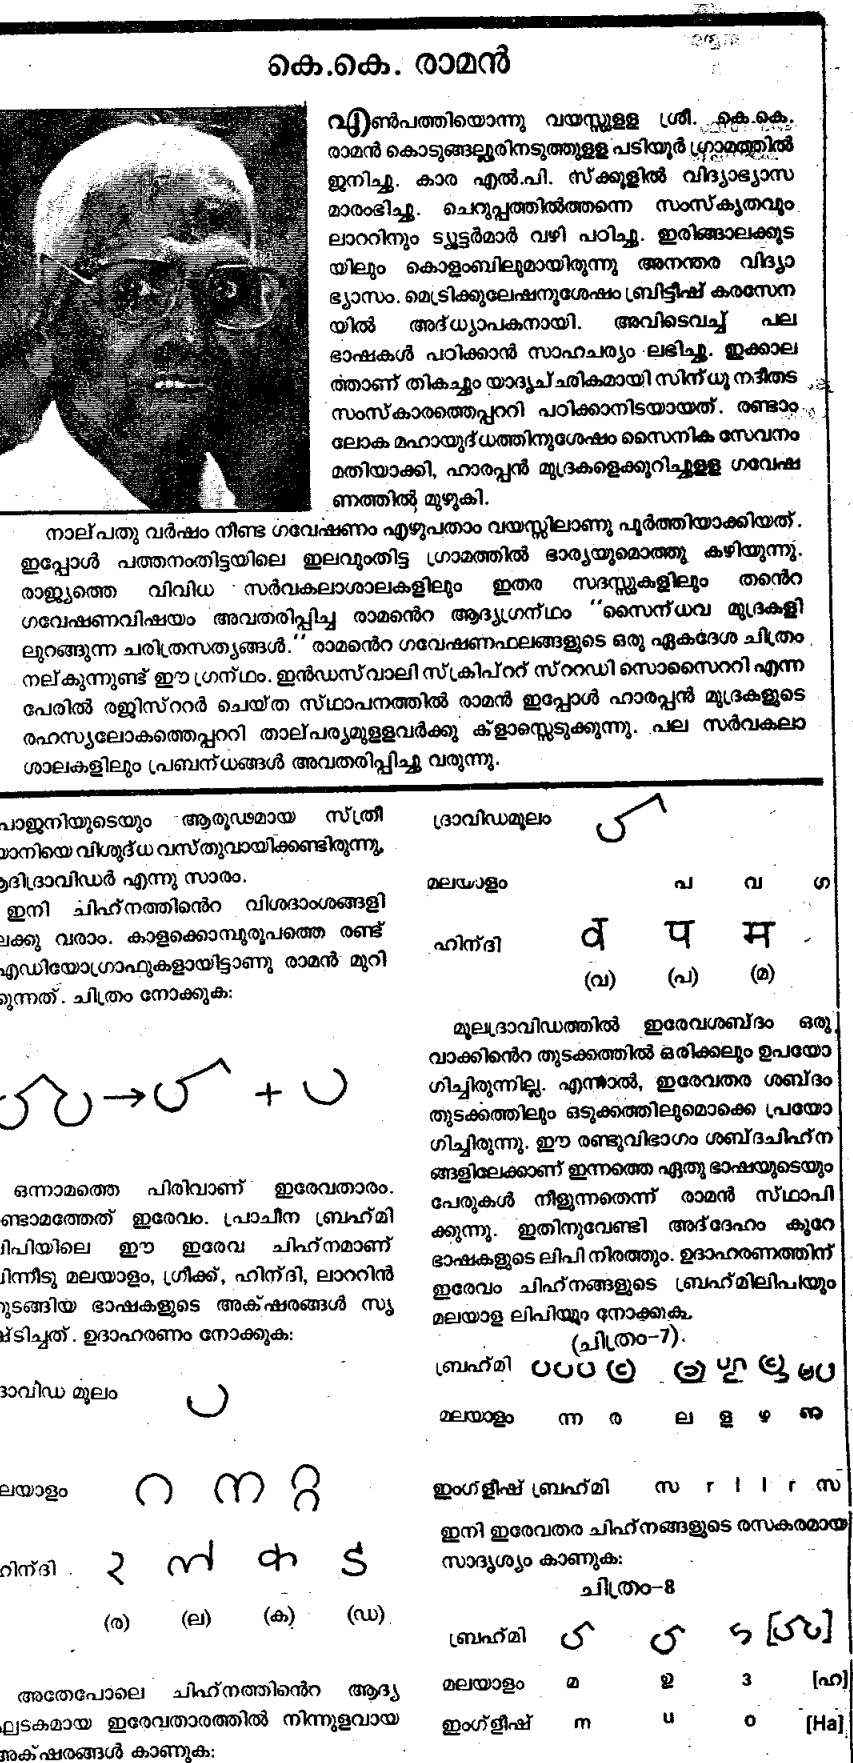 കെ.കെ. രാമൻ
എൺപത്തിയൊന്നു വയസ്സുള്ള ശ്രീ. കെ.കെ.
രാമൻ കൊടുങ്ങല്ലൂരിനടുത്തുള്ള പടിയൂർ ഗ്രാമത്തിൽ
ജനിച്ചു. കാര എൽ.പി. സ്ക്കൂളിൽ വിദ്യാഭ്യാസ
മാരംഭിച്ചു. ചെറുപ്പത്തിൽത്തന്നെ സംസ്കൃതവും
ലാററിനും ട്യൂട്ടർമാർ വഴി പഠിച്ചു. ഇരിങ്ങാലക്കുട
യിലും കൊളംബിലുമായിരുന്നു അനന്തര വിദ്യാ
ഭ്യാസം. മെട്രിക്കുലേഷനുശേഷം ബ്രിട്ടീഷ് കരസേന
യിൽ അദ്ധ്യാപകനായി. അവിടെവച്ച് പല
ഭാഷകൾ പഠിക്കാൻ സാഹചര്യം ലഭിച്ചു. ഇക്കാല
ത്താണ് തികച്ചും യാദൃച്ഛികമായി സിന്ധു നദീതട
സംസ്കാരത്തെപ്പററി പഠിക്കാനിടയായത്. രണ്ടാം
ലോക മഹായുദ്ധത്തിനുശേഷം സൈനിക സേവനം
മതിയാക്കി, ഹാരപ്പൻ മുദ്രകളെക്കുറിച്ചുള്ള ഗവേഷ
ണത്തിൽ മുഴുകി.
നാല്പതു വർഷം നീണ്ട ഗവേഷണം എഴുപതാം വയസ്സിലാണു പൂർത്തിയാക്കിയത്.
ഇപ്പോൾ പത്തനംതിട്ടയിലെ ഇലവുംതിട്ട ഗ്രാമത്തിൽ ഭാര്യയുമൊത്തു കഴിയുന്നു.
രാജ്യത്തെ വിവിധ സർവകലാശാലകളിലും ഇതര സദസ്സുകളിലും തൻെറ
ഗവേഷണവിഷയം അവതരിപ്പിച്ച രാമൻെറ ആദ്യഗ്രന്ഥം "സൈന്ധവ മുദ്രകളി
ലുറങ്ങുന്ന ചരിത്രസത്യങ്ങൾ." രാമൻെറ ഗവേഷണഫലങ്ങളുടെ ഒരു ഏകദേശ ചിത്രം
നല്കുന്നുണ്ട് ഈ ഗ്രന്ഥം. ഇൻഡസ് വാലി സ്ക്രിപ്ററ് സ്ററഡി സൊസൈററി എന്ന
പേരിൽ രജിസ്ററർ ചെയ്ത സ്ഥാപനത്തിൽ രാമൻ ഇപ്പോൾ ഹാരപ്പൻ മുദ്രകളുടെ
രഹസ്യലോകത്തെപ്പററി താല്പര്യമുള്ളവർക്കു ക്ളാസ്സെടുക്കുന്നു. പല സർവകലാ
ശാലകളിലും പ്രബന്ധങ്ങൾ അവതരിപ്പിച്ചു വരുന്നു.
പാജനിയുടെയും ആരൂഢമായ സ്ത്രീ
യാനിയെ വിശുദ്ധ വസ്തുവായിക്കണ്ടിരുന്നു,
ആദിദ്രാവിഡർ എന്നു സാരം.
ഇനി ചിഹ്നത്തിൻെറ വിശദാംശങ്ങളി
ലേക്കു വരാം. കാളക്കൊമ്പുരൂപത്തെ രണ്ട്
എഡിയോഗ്രാഫുകളായിട്ടാണു രാമൻ മുറി
ക്കുന്നത്. ചിത്രം നോക്കുക:
→ +
ഒന്നാമത്തെ പിരിവാണ് ഇരേവതാരം.
ണ്ടാമത്തേത് ഇരേവം. പ്രാചീന ബ്രഹ്മി
ലിപിയിലെ ഈ ഇരേവ ചിഹ്നമാണ്
പിന്നീടു മലയാളം, ഗ്രീക്ക്, ഹിന്ദി, ലാററിൻ
തുടങ്ങിയ ഭാഷകളുടെ അക്ഷരങ്ങൾ സൃ
ഷ്ടിച്ചത്. ഉദാഹരണം നോക്കുക:
ദ്രാവിഡ മൂലം
മലയാളം റ ന റ്റ
ഹിന്ദി
(ര) (ല) (ക) (ഡ)
അതേപോലെ ചിഹ്നത്തിൻെറ ആദ്യ
ഘടകമായ ഇരേവതാരത്തിൽ നിന്നുളവായ
അക്ഷരങ്ങൾ കാണുക:
ദ്രാവിഡമൂലം
മലയാളം പ വ ഗ
ഹിന്ദി व प म
(വ) (പ) (മ)
മൂലദ്രാവിഡത്തിൽ ഇരേവശബ്ദം ഒരു
വാക്കിൻെറ തുടക്കത്തിൽ ഒരിക്കലും ഉപയോ
ഗിച്ചിരുന്നില്ല. എന്നാൽ, ഇരേവതര ശബ്ദം
തുടക്കത്തിലും ഒടുക്കത്തിലുമൊക്കെ പ്രയോ
ഗിച്ചിരുന്നു. ഈ രണ്ടുവിഭാഗം ശബ്ദചിഹ്ന
ങ്ങളിലേക്കാണ് ഇന്നത്തെ ഏതു ഭാഷയുടെയും
പേരുകൾ നീളുന്നതെന്ന് രാമൻ സ്ഥാപി
ക്കുന്നു. ഇതിനുവേണ്ടി അദ്ദേഹം കുറേ
ഭാഷകളുടെ ലിപി നിരത്തും. ഉദാഹരണത്തിന്
ഇരേവം ചിഹ്നങ്ങളുടെ ബ്രഹ്മിലിപിയും
മലയാള ലിപിയും നോക്കുക.
(ചിത്രം-7).
ബ്രഹ്മി
മലയാളം ന്ന ര ല ള ഴ ണ
ഇംഗ്ളീഷ് ബ്രഹ്മി സ r l l r സ
ഇനി ഇരേവതര ചിഹ്നങ്ങളുടെ രസകരമായ
സാദൃശ്യം കാണുക:
ചിത്രം-8
ബ്രഹ്മി
മലയാളം മ ഉ 3 [ഹ]
ഇംഗ്ളീഷ് m u o [Ha]